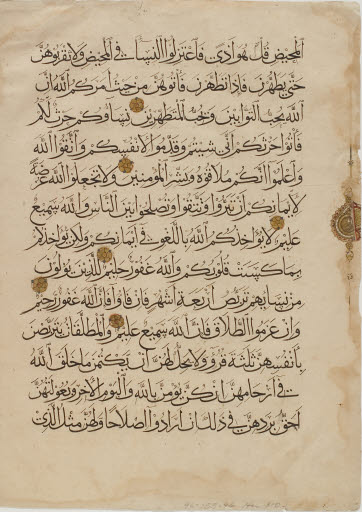 المحيض قل هو أذى فاعتزلوا النساء في المحيض ولا تقربوهن
حتى يطهرن فإذا تطهرن فأتوهن من حيث أمركم الله إن
الله يحب التوابين ويحب المتطهرين نساؤكم حرث لكم
فأتوا حرثكم أنى شئتم وقدموا لأنفسكم واتقوا الله
واعلموا أنكم ملاقوه وبشر المؤمنين ولا تجعلوا الله عرضة
لأيمانكم أن تبروا وتتقوا وتصلحوا بين الناس والله سميع
عليم لا يؤاخذكم الله باللغو في أيمانكم ولكن يؤاخذكم
بما كسبت قلوبكم والله غفور حليم للذين يؤلون
من نسائهم تربص أربعة أشهر فإن فاؤا فإن الله غفور رحيم
وإن عزموا الطلاق فإن الله سميع عليم والمطلقات يتربصن
بأنفسهن ثلثة قروء ولا يحل لهن أن يكتمن ما خلق الله
في أرحامهن إن كن يؤمن بالله واليوم الآخر وبعولتهن
أحق بردهن في ذلك إن أرادوا إصلاحا ولهن مثل الذي